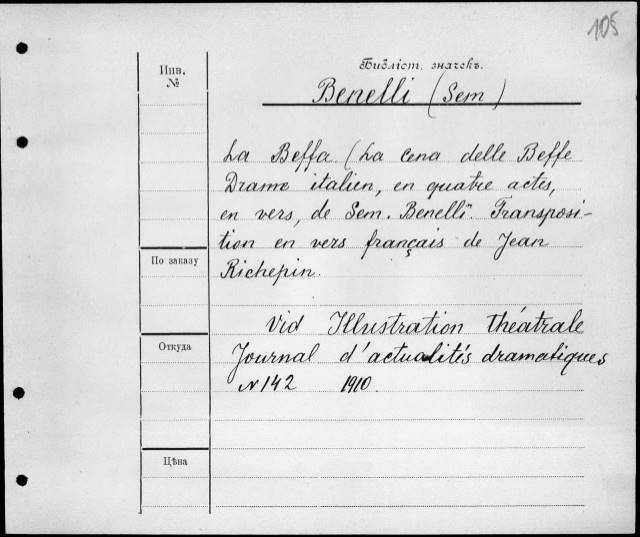 105
Инв. №
Библіот. значекъ.
Benelli (Sem)
La Beffa (La cena delle Beffe
Drame italien, en quatre actes,
en vers, de Sem. Benelli". Transposi-
tion en vers français de Jean
Richepin.
По заказу
Vid Illustration théatrale
Откуда
Journal d'actualités dramatiques
N 142 1910.
Цѣна